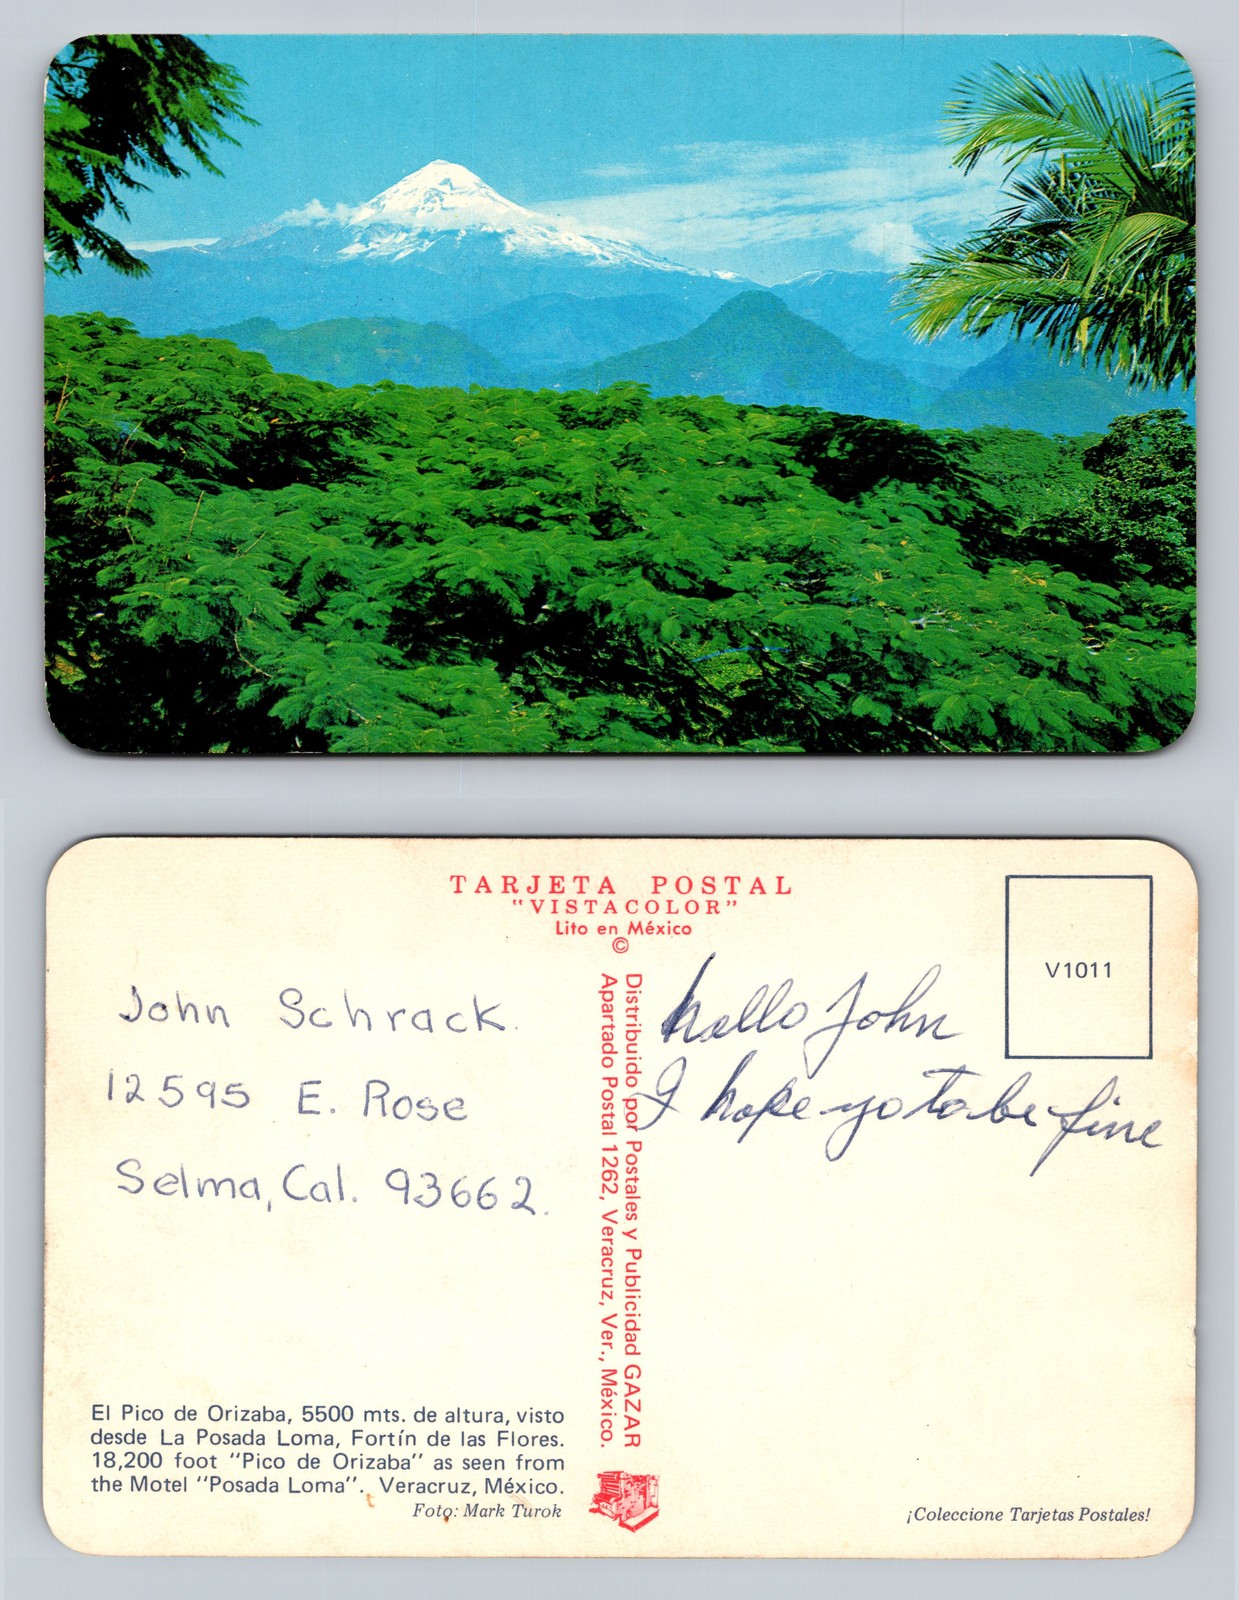 TARJETA POSTAL
"VISTACOLOR"
Lito en México
©
V1011
John Schrack.
12595 E. Rose
Selma, Cal. 93662.
Distribuido por Postales y Publicidad GAZAR
Apartado Postal 1262, Veracruz, Ver., México.
hello John
I hope yo to be fine
El Pico de Orizaba, 5500 mts. de altura, visto
desde La Posada Loma, Fortín de las Flores.
18,200 foot "Pico de Orizaba" as seen from
the Motel "Posada Loma". Veracruz, México.
Foto: Mark Turok
¡Coleccione Tarjetas Postales!